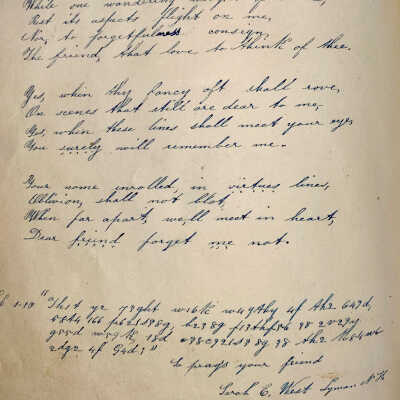 While one wandering
Rest its aspects flight on me,
Nor, to forgetfulness consign,
The friend, that love to think of thee.
Yes, when thy fancy oft shall rove,
On scenes that still are dear to me,
Yes, when these lines shall meet your eye,
You surely will remember me.
Your name enrolled, in virtues lines,
Oblivion, shall not blot
When far apart, we'll meet in heart,
Dear friend forget me not.
1-10 "Th1t y2 73ght w16k 4f th2
166
w49k, 1nd th2
4f G4d;"
So prays your friend
Sarah E. West Lyman N H